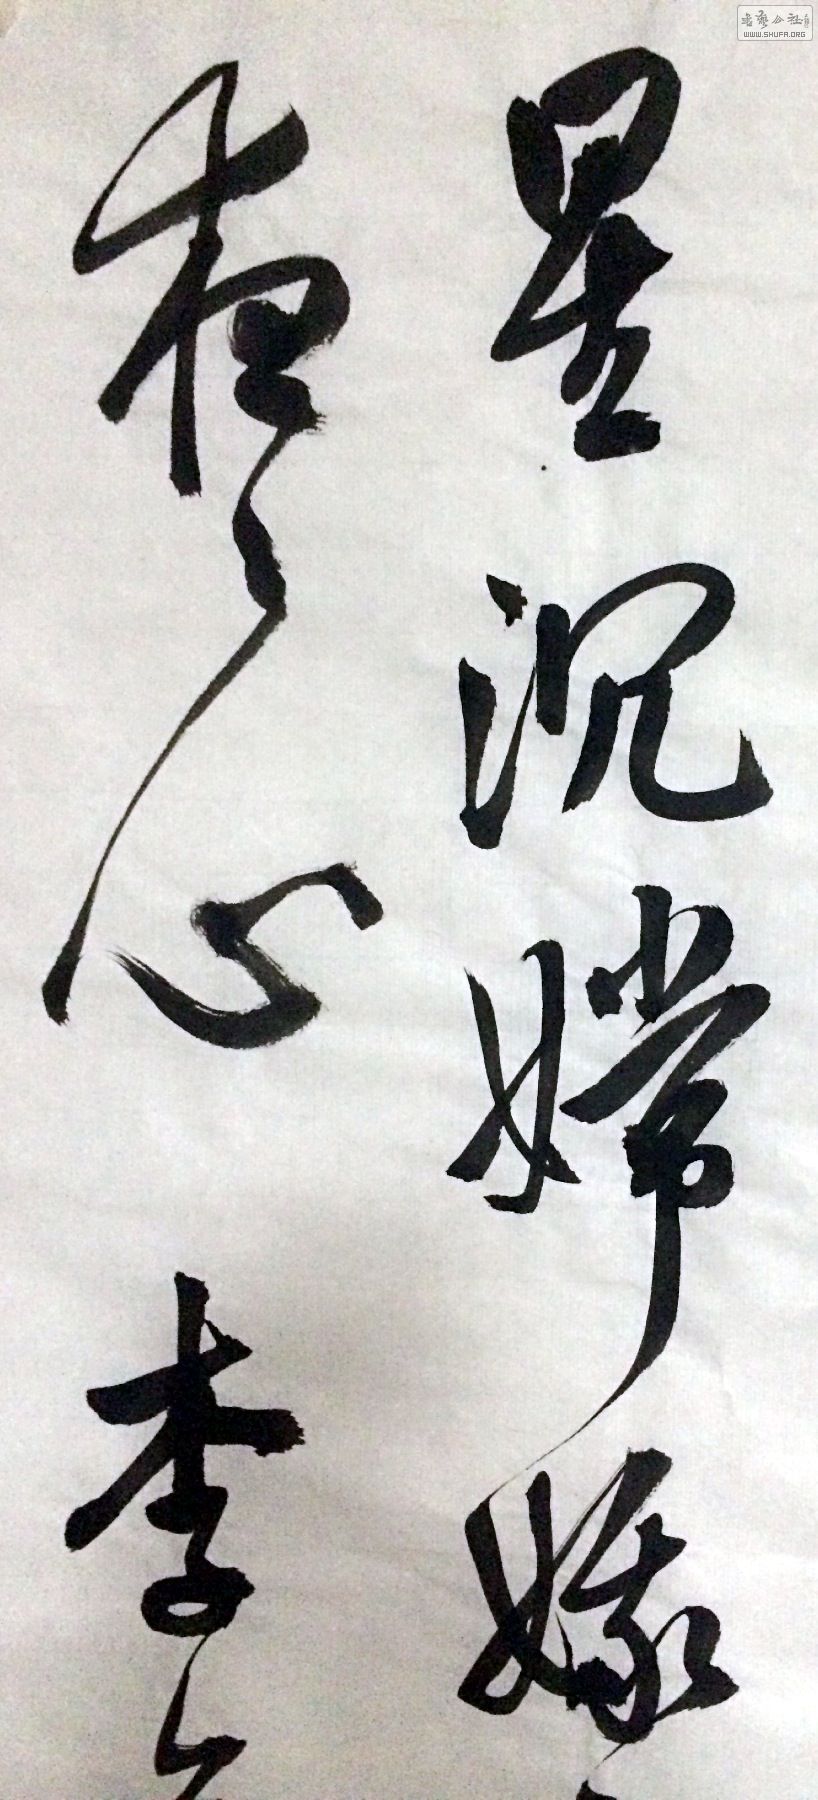 星沉嫦娥
夜夜心 李
书艺公社
WWW.SHUFA.ORG